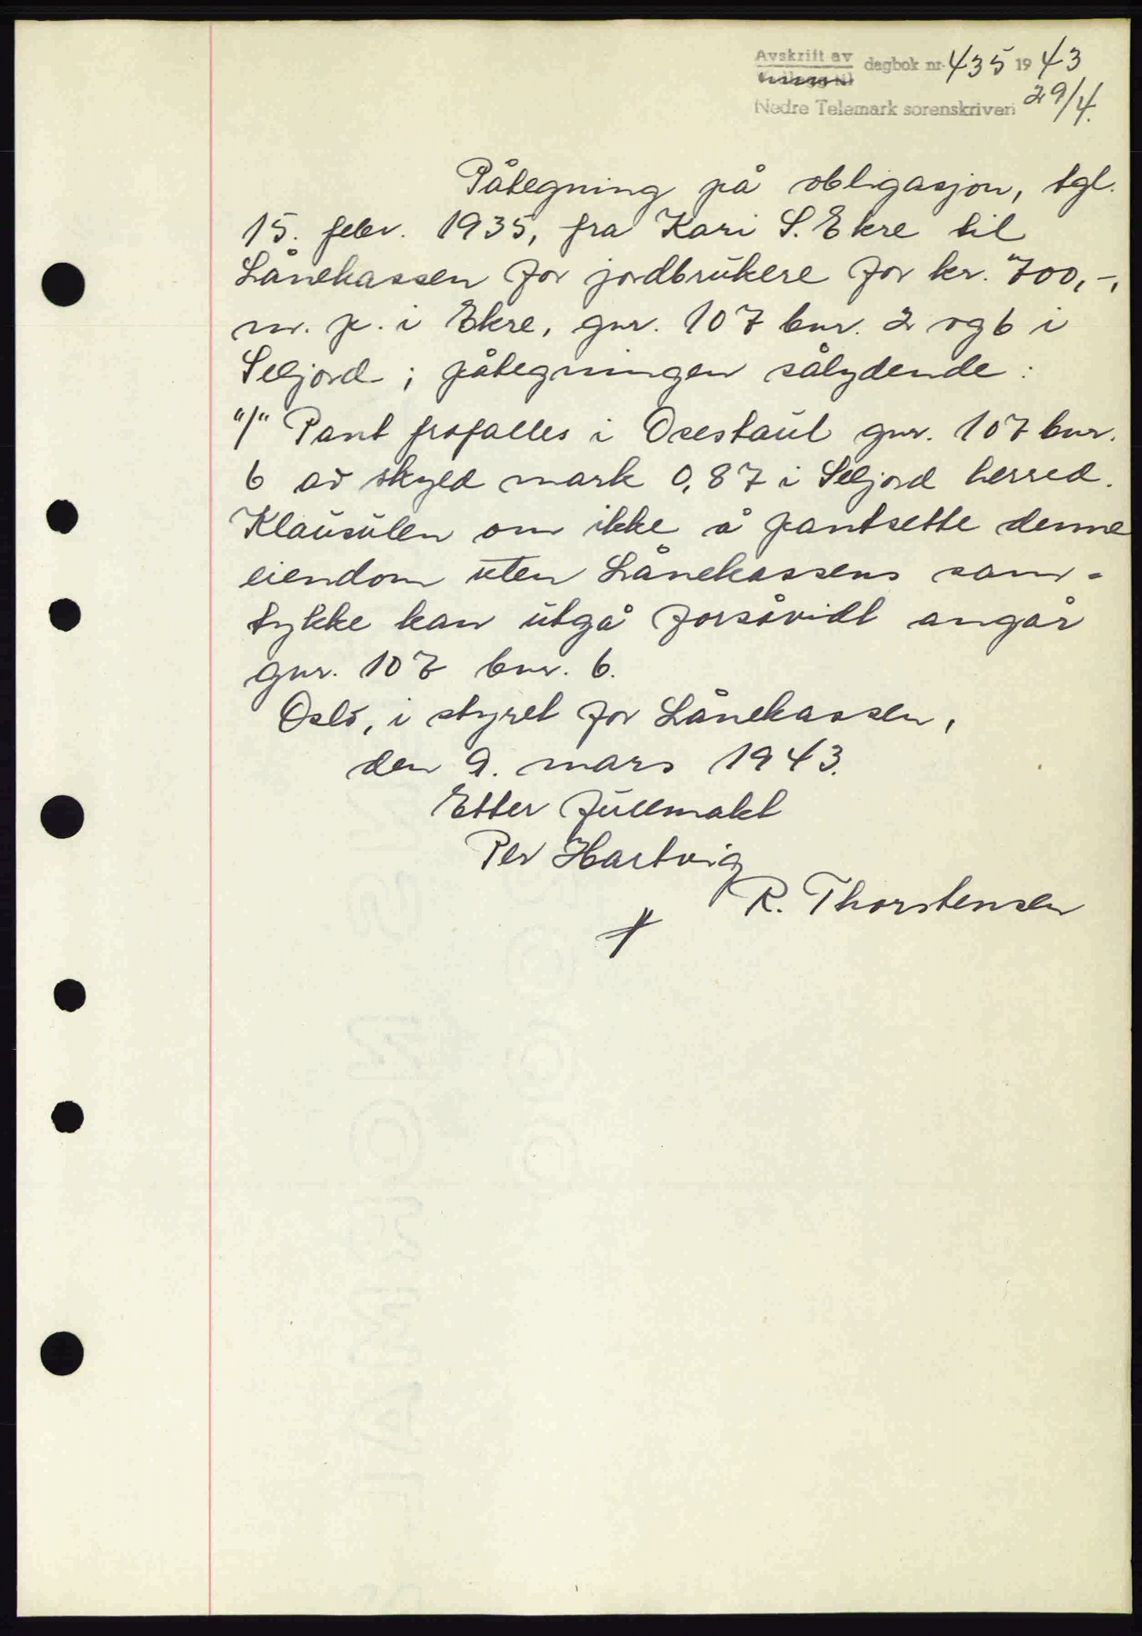 Avskrift av dagbok nr. 435 19 43
Vedlegg til
Nedre Telemark sorenskriveri 29/4.
Påtegning på obligasjon, tgl.
15. febr. 1935, fra Kari S. Ekre til
Lånekassen for jordbrukere for kr. 700,-,
m. p. i Ekre, gnr. 107 bnr. 2 og 6 i
Seljord; påtegningen sålydende:
"/" Pant frafalles i Osestaul gnr. 107 bnr.
6 av skyld mark 0,87 i Seljord herred.
Klausulen om ikke å pantsette denne
eiendom uten Lånekassens sam-
tykke kan utgå forsåvidt angår
gnr. 107 bnr. 6.
Oslo, i styret for Lånekassen,
den 9. mars 1943.
Etter fullmakt
Per Hartvig
R. Thorstensen